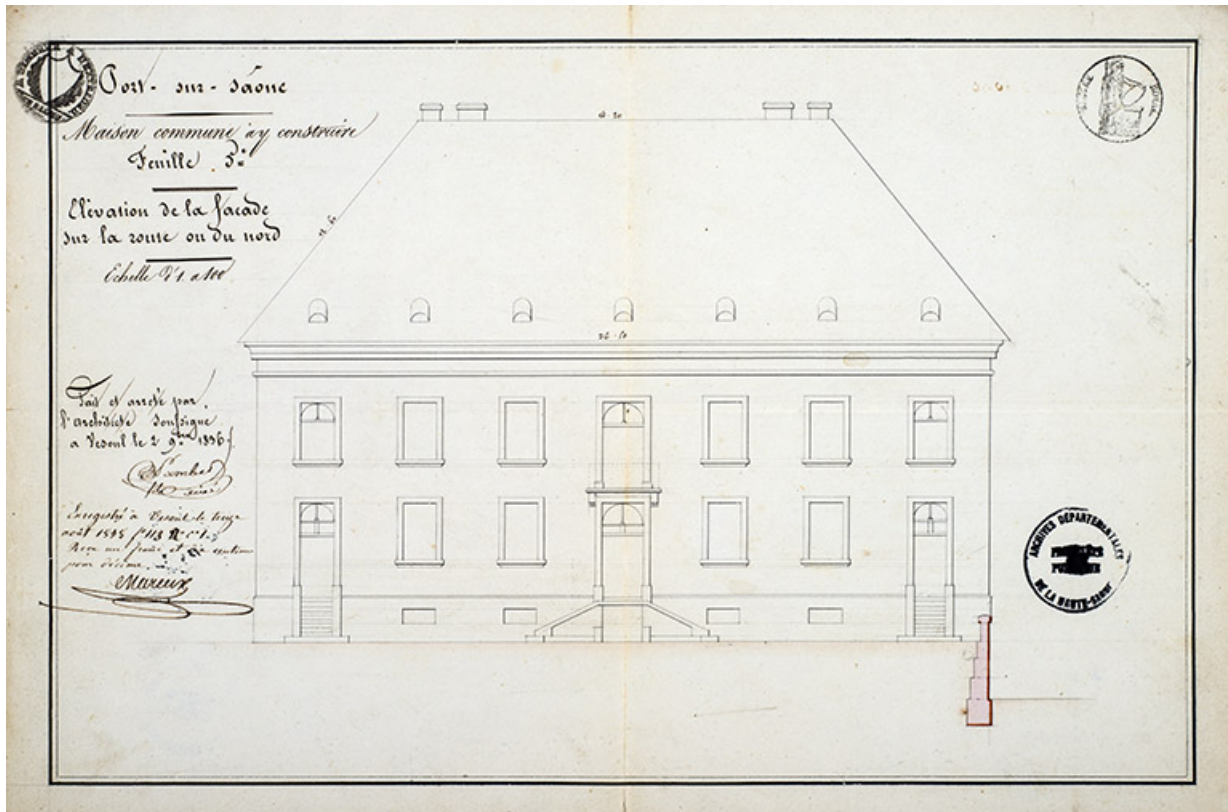 Port-sur-Saône
Maison commune à y construire
Feuille 5e
Elévation de la façade
sur la route ou du nord
Echelle d'1 a 100
Fait et arrêté par
l'architecte soussigné
a Vesoul le 2 9bre 1836
Enregistré à Vesoul le treize
août 1845 fo 118
Reçu un franc et dix centime
pour décime
Mareux
26.50
ARCHIVES DÉPARTEMENTALES
DE LA HAUTE-SAÔNE